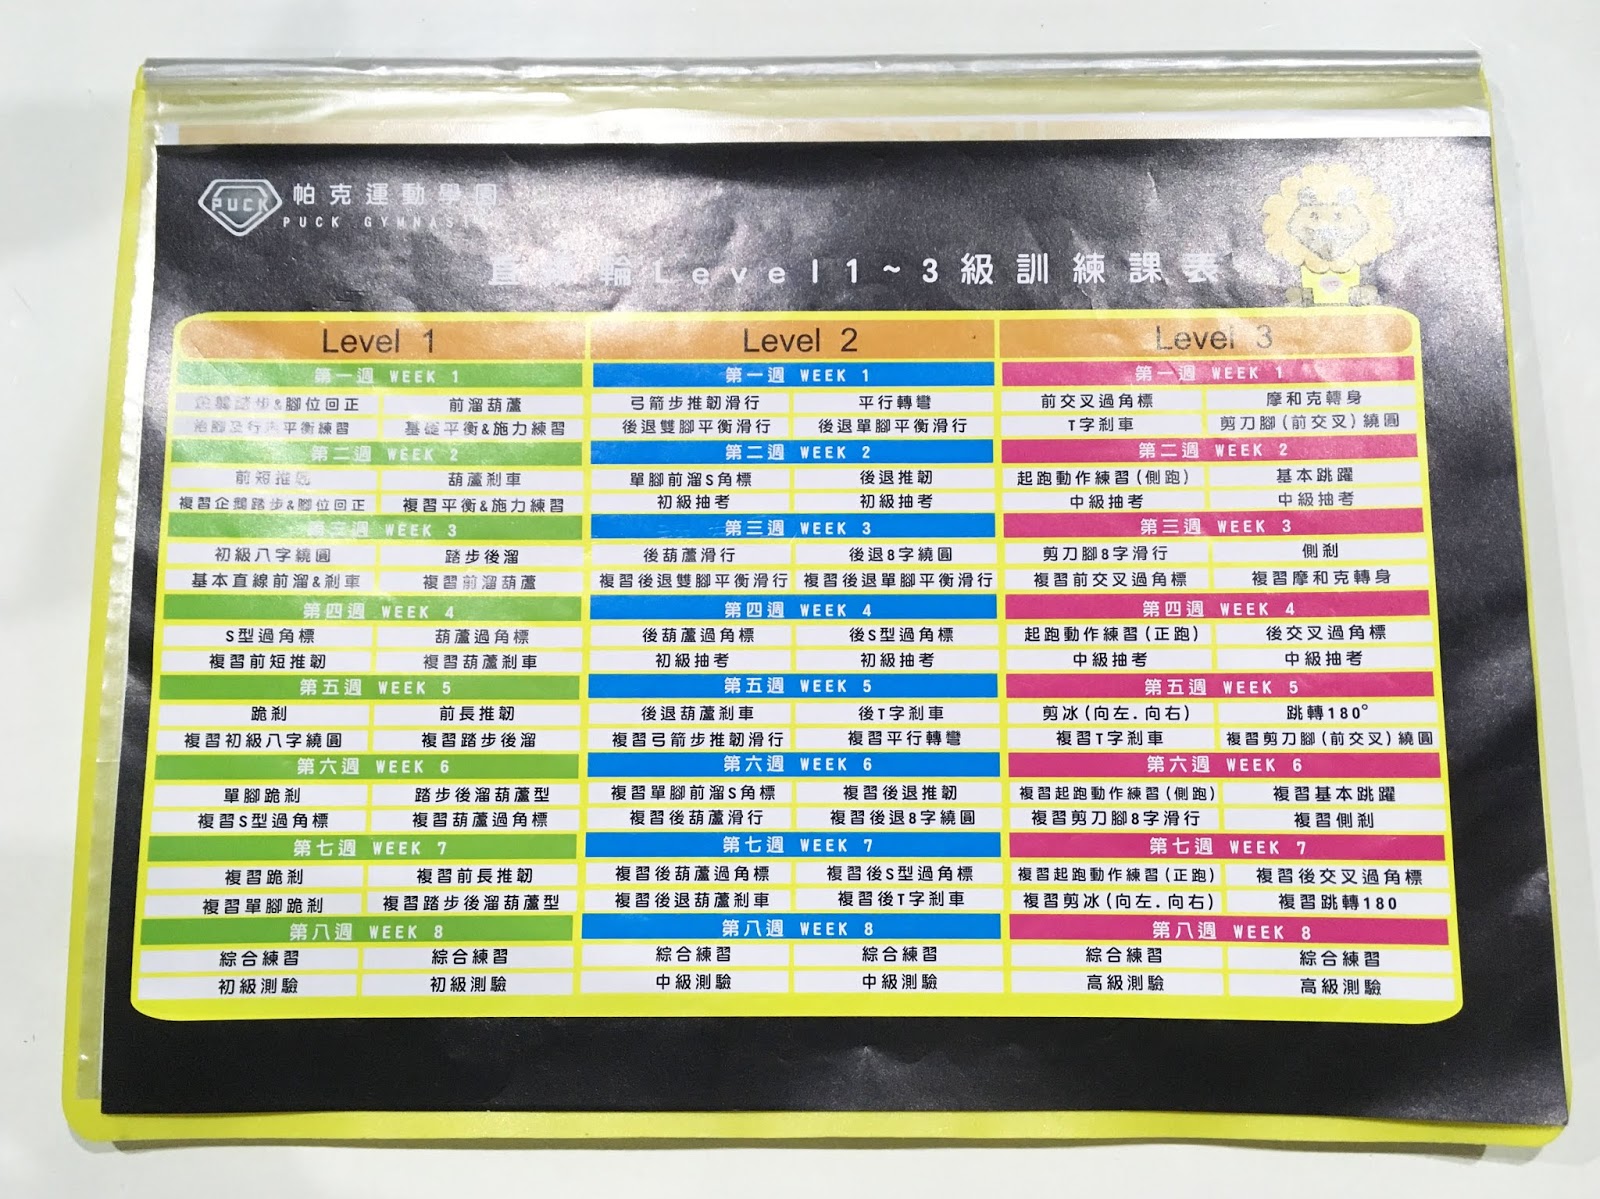 PUCK 帕克運動學園
PUCK GYMNAS
輪Level1~3級訓練課表
Level 1 Level 2 Level 3
第一週 WEEK 1 第一週 WEEK 1 第一週 WEEK 1
企鵝踏步&腳位回正 前溜葫蘆 弓箭步推韌滑行 平行轉彎 前交叉過角標 摩和克轉身
平衡練習 基礎平衡&施力練習 後退雙腳平衡滑行 後退單腳平衡滑行 T字剎車 剪刀腳(前交叉)繞圓
第二週 WEEK 2 第二週 WEEK 2 第二週 WEEK 2
前短推韌 葫蘆剎車 單腳前溜S角標 後退推韌 起跑動作練習(側跑) 基本跳躍
複習企鵝踏步&腳位回正 複習平衡&施力練習 初級抽考 初級抽考 中級抽考 中級抽考
第三週 WEEK 3 第三週 WEEK 3 第三週 WEEK 3
初級八字繞圓 踏步後溜 後葫蘆滑行 後退8字繞圓 剪刀腳8字滑行 側剎
基本直線前溜&剎車 複習前溜葫蘆 複習後退雙腳平衡滑行 複習後退單腳平衡滑行 複習前交叉過角標 複習摩和克轉身
第四週 WEEK 4 第四週 WEEK 4 第四週 WEEK 4
S型過角標 葫蘆過角標 後葫蘆過角標 後S型過角標 起跑動作練習(正跑) 後交叉過角標
複習前短推韌 複習葫蘆剎車 初級抽考 初級抽考 中級抽考 中級抽考
第五週 WEEK 5 第五週 WEEK 5 第五週 WEEK 5
跪剎 前長推韌 後退葫蘆剎車 後T字剎車 剪冰(向左.向右) 跳轉180°
複習初級八字繞圓 複習踏步後溜 複習弓箭步推韌滑行 複習平行轉彎 複習T字剎車 複習剪刀腳(前交叉)繞圓
第六週 WEEK 6 第六週 WEEK 6 第六週 WEEK 6
單腳跪剎 踏步後溜葫蘆型 複習單腳前溜S角標 複習後退推韌 複習起跑動作練習(側跑) 複習基本跳躍
複習S型過角標 複習葫蘆過角標 複習後葫蘆滑行 複習後退8字繞圓 複習剪刀腳8字滑行 複習側剎
第七週 WEEK 7 第七週 WEEK 7 第七週 WEEK 7
複習跪剎 複習前長推韌 複習後葫蘆過角標 複習後S型過角標 複習起跑動作練習(正跑) 複習後交叉過角標
複習單腳跪剎 複習踏步後溜葫蘆型 複習後退葫蘆剎車 複習後T字剎車 複習剪冰(向左.向右) 複習跳轉180
第八週 WEEK 8 第八週 WEEK 8 第八週 WEEK 8
綜合練習 綜合練習 綜合練習 綜合練習 綜合練習 綜合練習
初級測驗 初級測驗 中級測驗 中級測驗 高級測驗 高級測驗